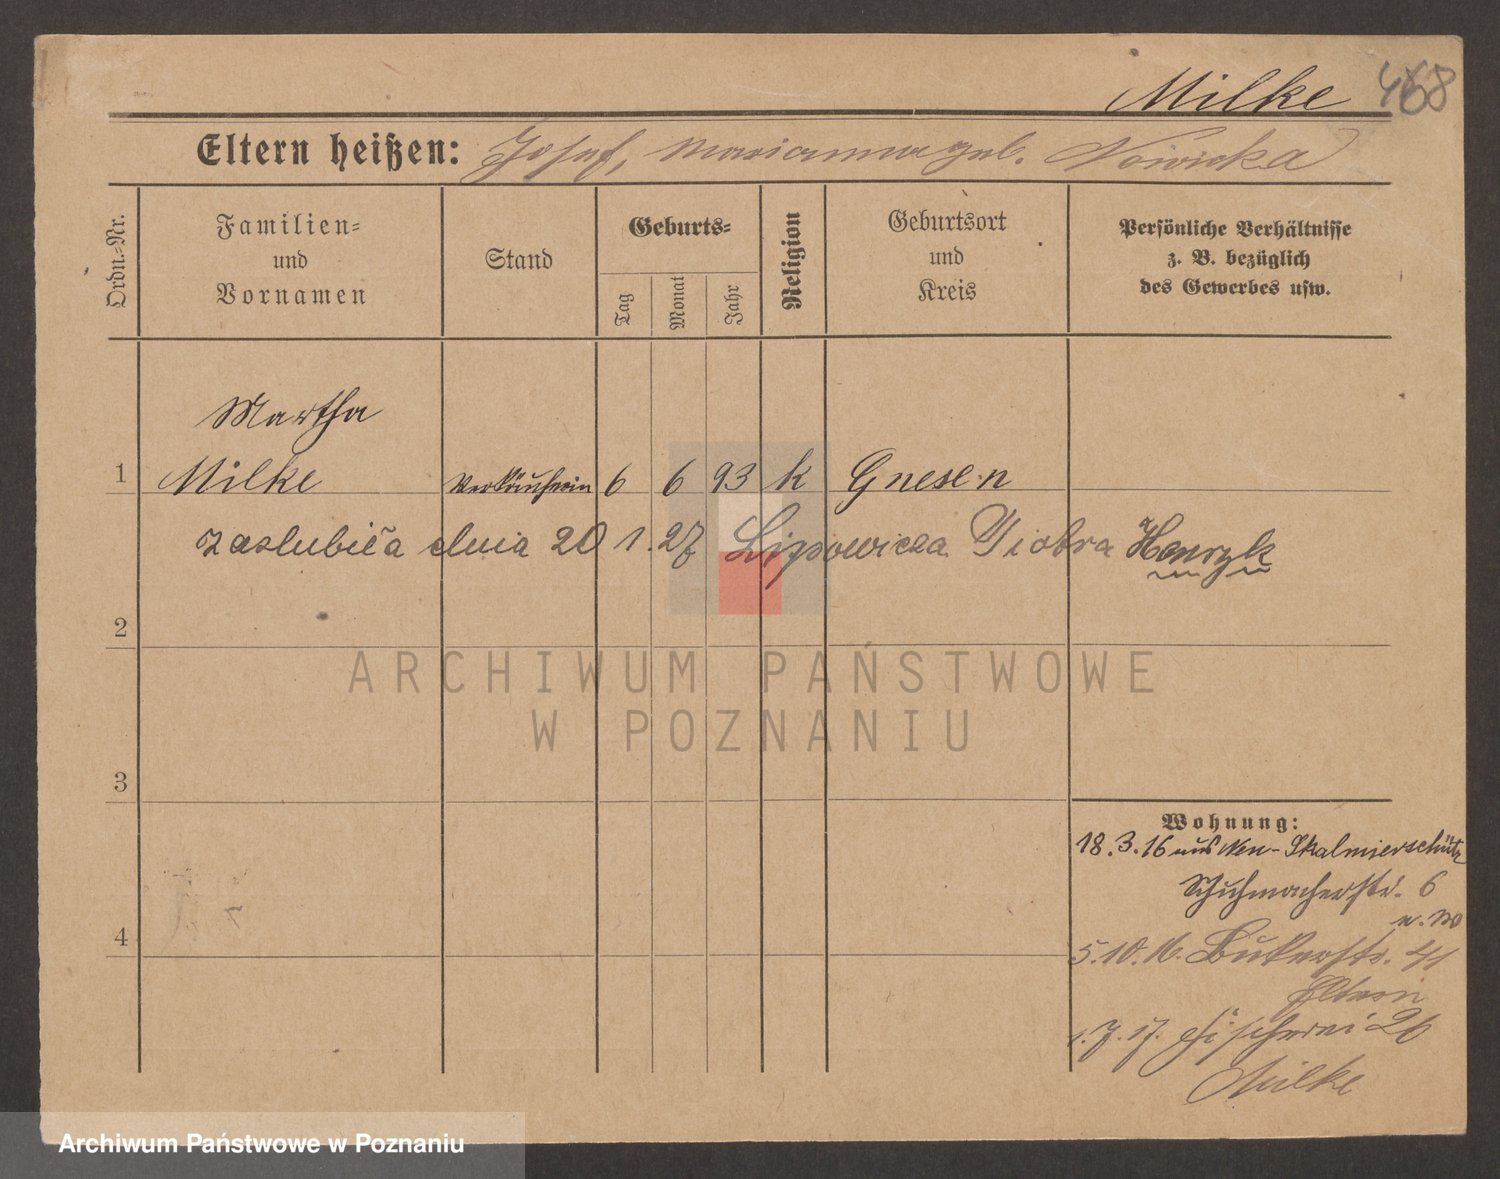 Milke 468
Eltern heißen: Josef, Marianna geb. Nowicka
Ordn.-Nr.
Familien-
und
Vornamen
Stand
Geburts-
Tag
Monat
Jahr
Religion
Geburtsort
und
Kreis
Persönliche Verhältnisse
z. B. bezüglich
des Gewerbes usw.
Martha
1 Milke Verkäuferin 6 6 93 k Gnesen
zaslubiła dnia 20 1. 27 Lipowicza Piotra Henryk
2
ARCHIWUM PAŃSTWOWE
W POZNANIU
3
Wohnung:
18.3.16 aus Neu-Skalmierschütz
Schuhmacherstr. 6
4
5.10.16. Bukerstr. 41
Eltern
1.7.17. Fischerei 26
Milke
Archiwum Państwowe w Poznaniu